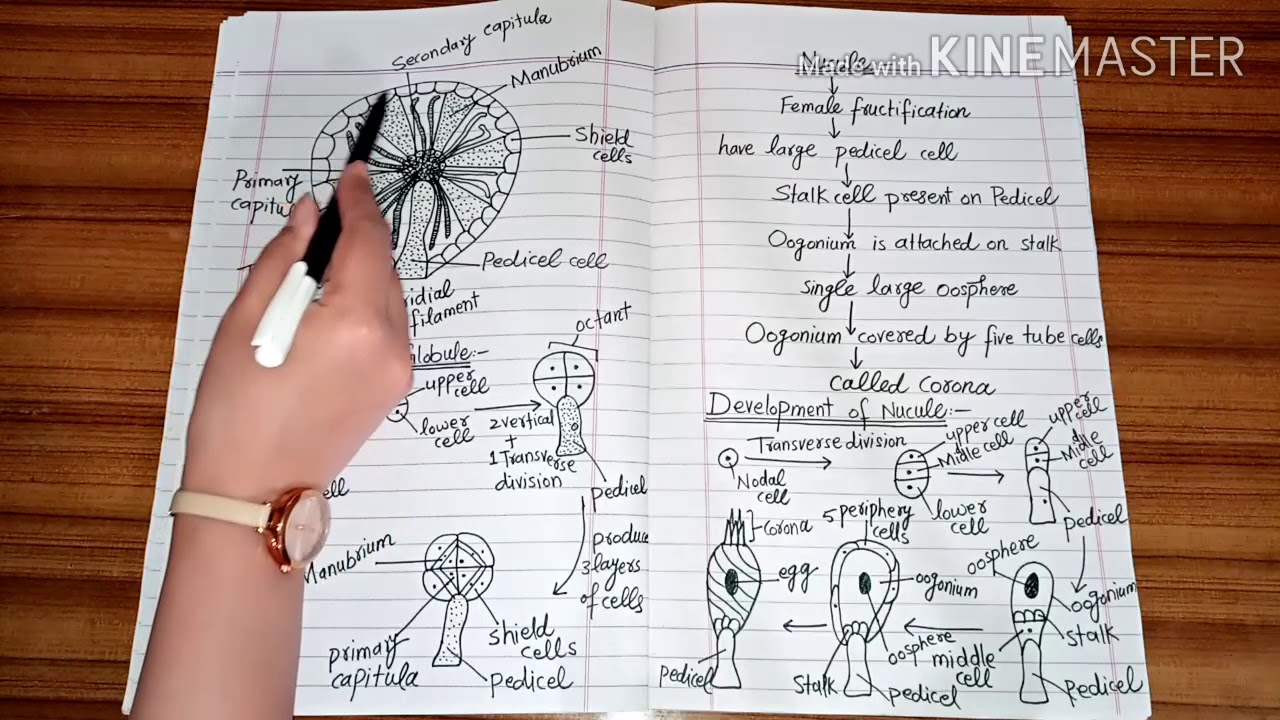 Secondary capitula
Manubrium
Shield
cells
Primary
Pedicel cell
filament
octant
upper
cell
lower
cell
2 vertical
+
1 Transverse
division
Pedicel
produce
3 layers
of cells
Manubrium
primary
capitula
shield
cells
pedicel
Made with KINEMASTER
Nucule
Female fructification
have large pedicel cell
Stalk cell present on Pedicel
Oogonium is attached on stalk
single large oosphere
Oogonium covered by five tube cells
called Corona
Development of Nucule:-
Transverse division
Nodal
cell
upper cell
Midle cell
lower
cell
upper
cell
Midle
cell
pedicel
Corona
egg
Pedicel
5 periphery
cells
oogonium
oosphere
Stalk
pedicel
oosphere
oogonium
stalk
middle
cell
Pedicel